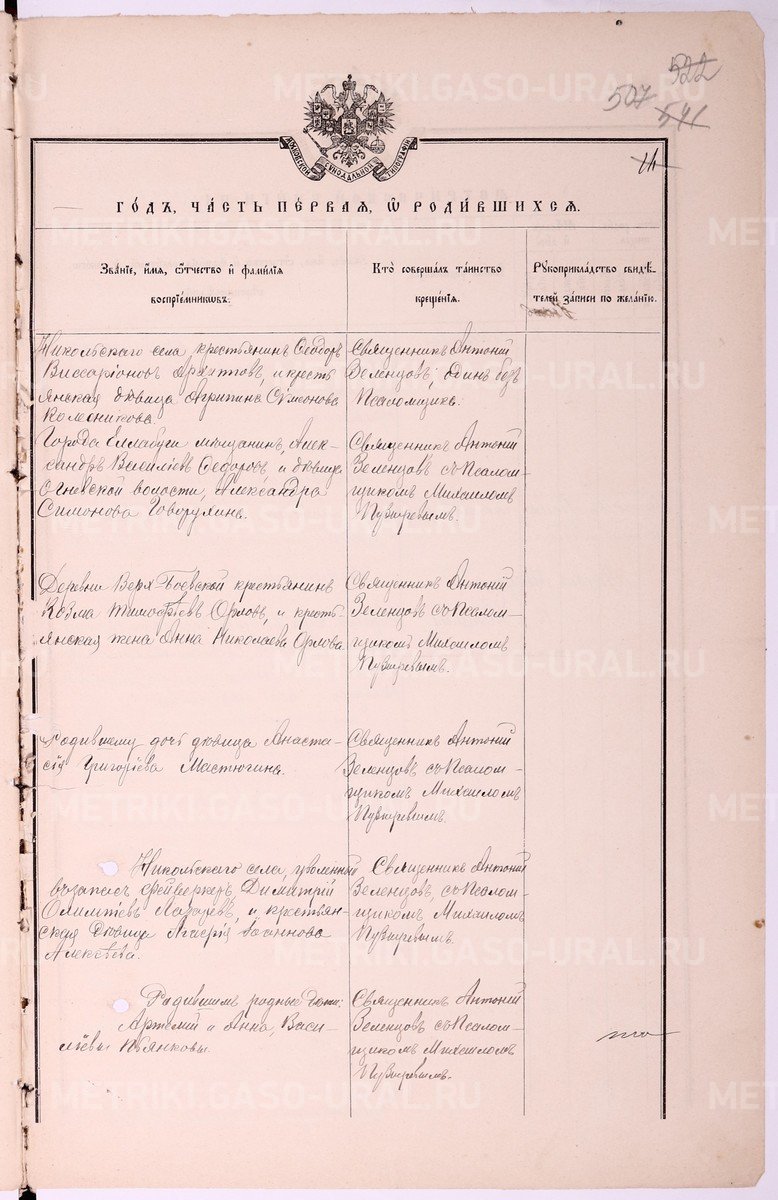 522
507
541
14
МОСКОВСКОЙ СѴНОДАЛЬНОЙ ТИПОГРАФІИ
ГО́ДЪ, ЧА́СТЬ ПЕ́РВАЯ, Ѽ РОДИ́ВШИХСЯ.
Зва́нїе, и҆́мя, ѻ҆́тчество и҆ фами́лїя
воспрїе́мникѡвъ.
Кто̀ соверша́лъ та́инство
креще́нїя.
Рꙋкоприкла́дство свидѣ́-
телей за́писи по жела́нїю.
Никольскаго села крестьянинъ Ѳеодоръ
Виссаріоновъ Архиповъ, и кресть
янская дѣвица Агрипина Сѵмеонова
Колесникова
Священникъ Антоній
Зеленцовъ, одинъ безъ
Псаломщика.
Города Еллабуги мѣщанинъ, Алек-
сандръ Василіевъ Ѳедоровъ, и дѣвица
Огневской волости, Александра
Симонова Говорухина.
Священникъ Антоній
Зеленцовъ съ Псалом-
щикомъ Михаиломъ
Пузыревымъ.
Деревни Верх-Боевской крестьянинъ
Козма Тимоѳѣевъ Орловъ, и кресть-
янская жена Анна Николаева Орлова
Священникъ Антоній
Зеленцовъ съ Псалом-
щикомъ Михаиломъ
Пузыревымъ.
Родившему дочь дѣвица Анаста-
сія Григоріева Мастюгина.
Священникъ Антоній
Зеленцовъ съ Псалом-
щикомъ Михаиломъ
Пузыревымъ.
Никольскаго села, уволенный
въ запасъ фейверкеръ, Димитрій
Олимпіевъ Лазаревъ, и крестьян-
ская дѣвица Іоаннова
Алексѣева.
Священникъ Антоній
Зеленцовъ, съ Псалом-
щикомъ Михаиломъ
Пузыревымъ.
Родившимъ родные
Артемій и Анна, Васи-
ліевы
Священникъ Антоній
Зеленцовъ съ Псалом-
щикомъ Михаиломъ
Пузыревымъ.
METRIKI.GASO-URAL.RU